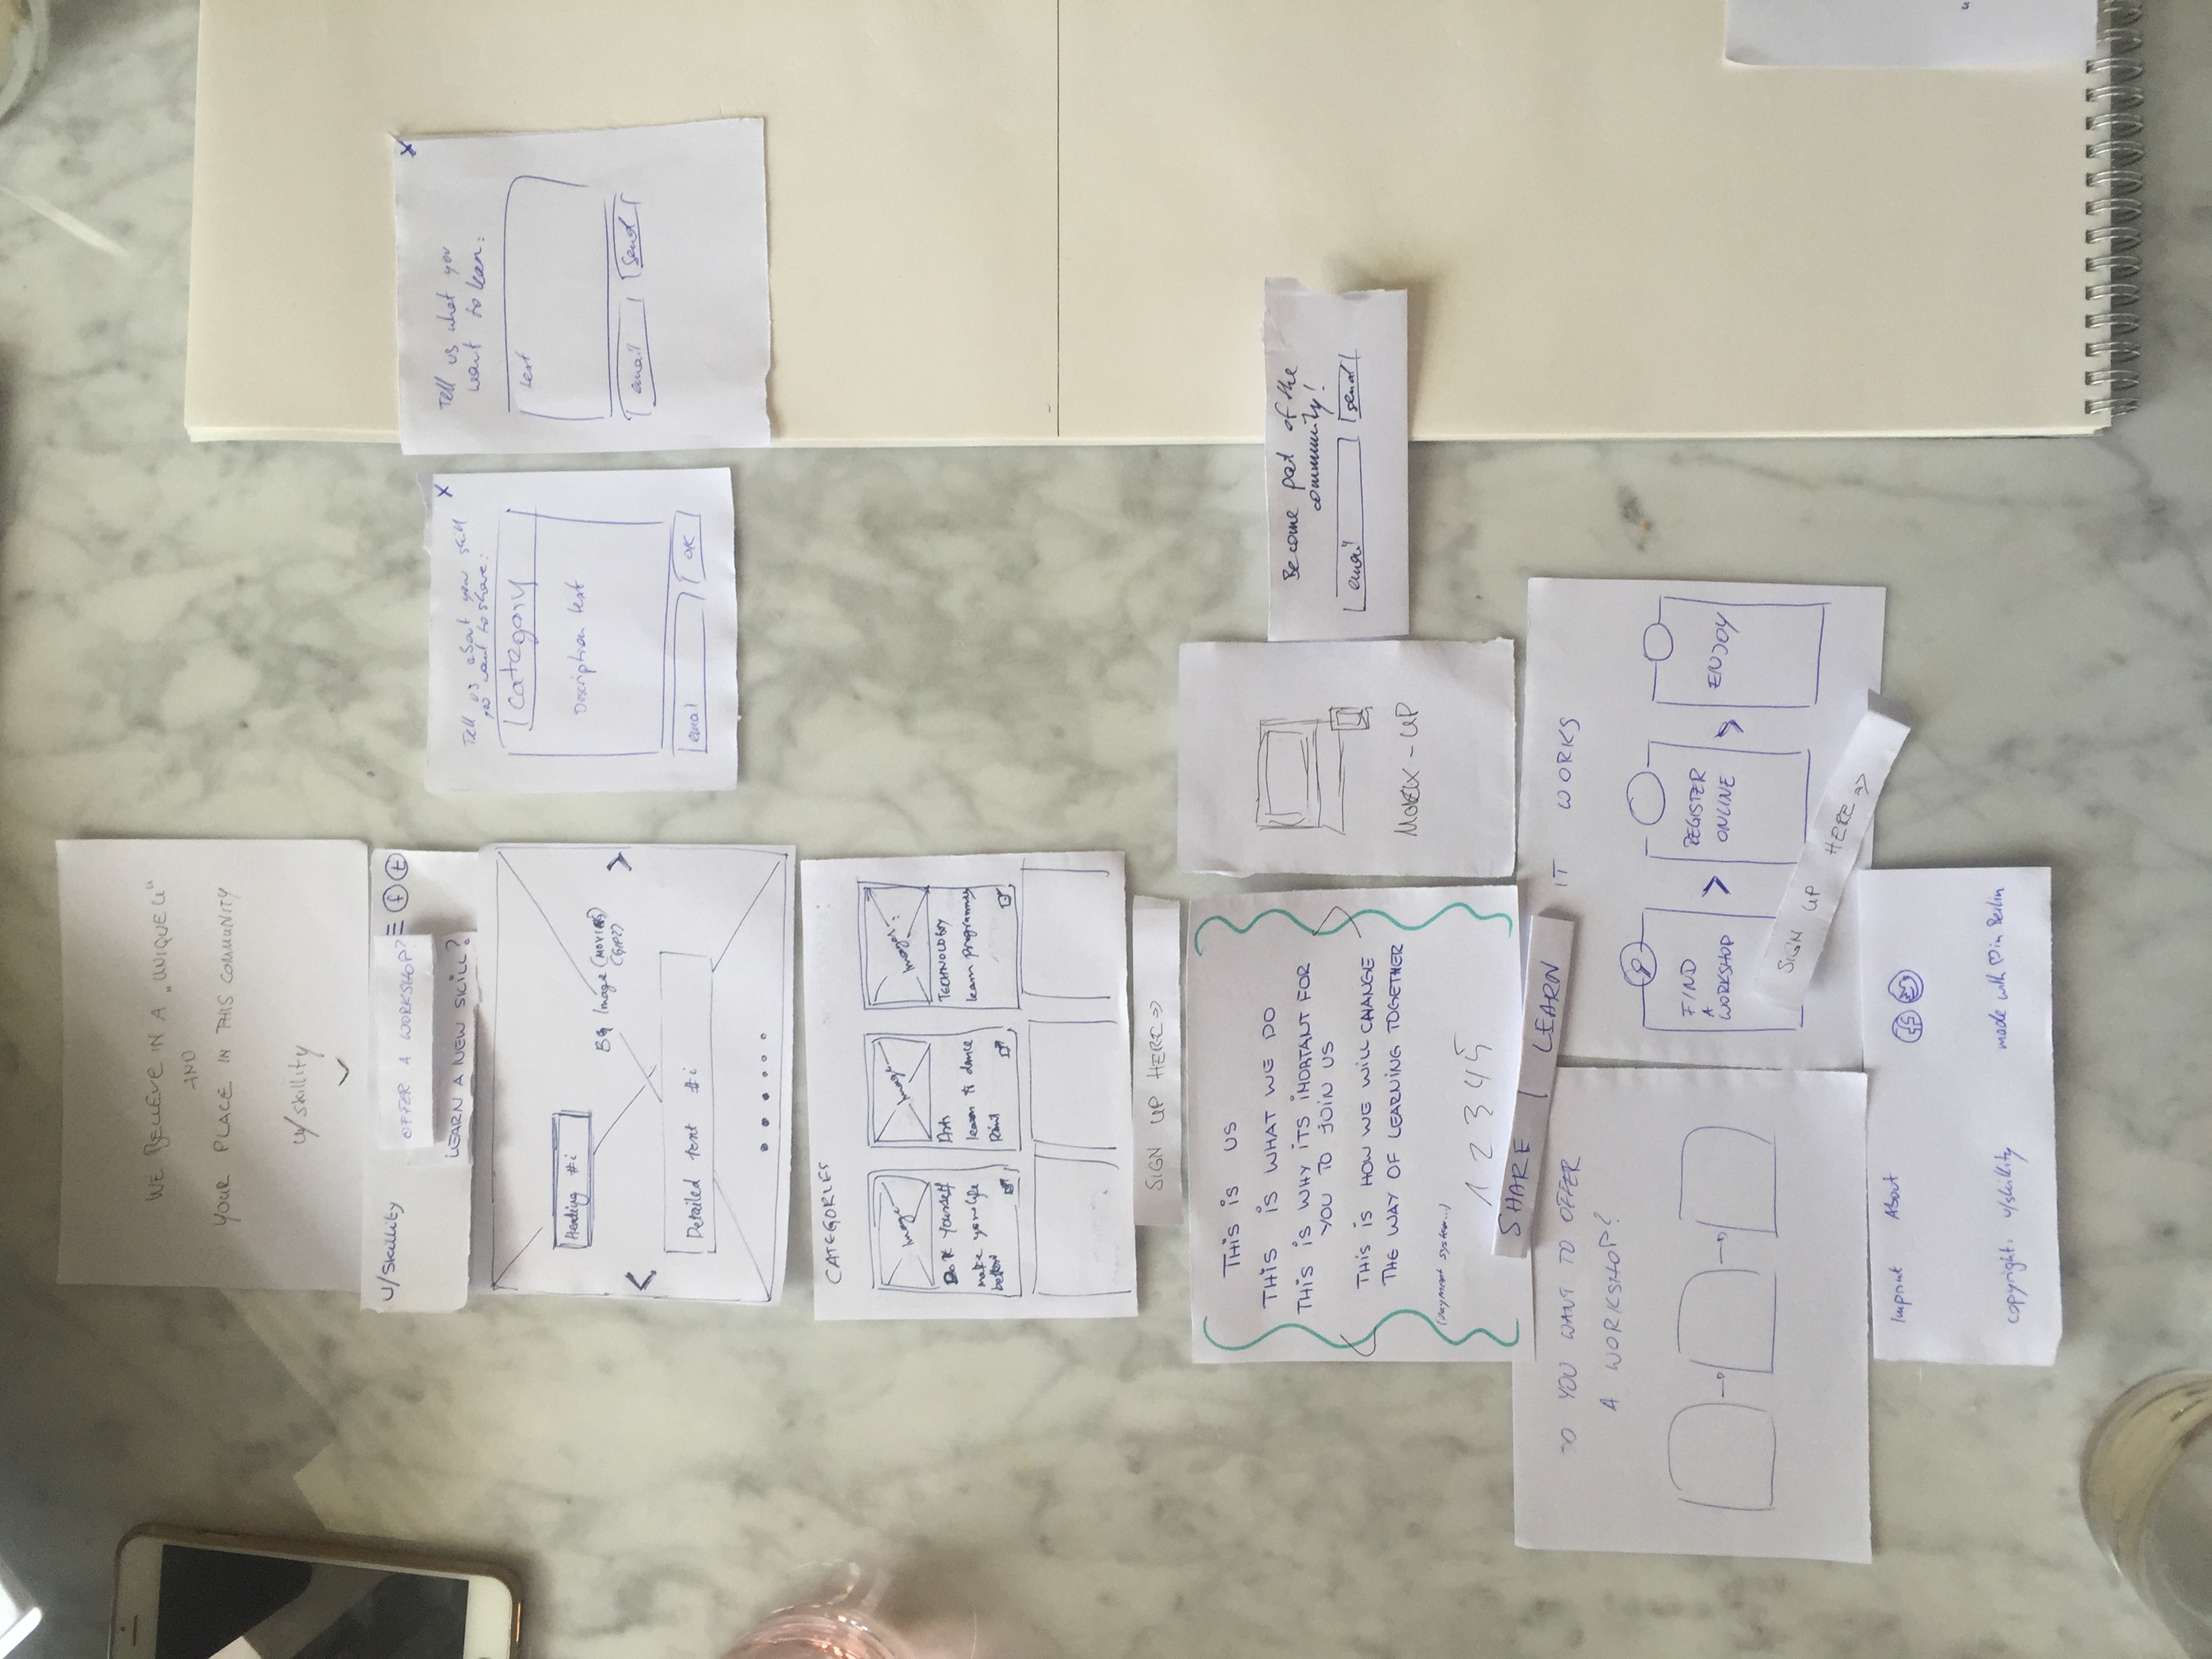 WE BELIEVE IN A „UNIQUE U"
AND
YOUR PLACE IN THIS COMMUNITY
u/skillity
U/Skillity
OFFER A WORKSHOP?
LEARN A NEW SKILL?
Heading #i
BG Image (MOVING)
(GIF?)
Detailed text #i
Tell us about your skill
you want to share:
Category
Description text
email
OK
X
Tell us what you
want to learn:
text
email
send
X
CATEGORIES
Image
Do it yourself
make your life
better
Image
Arts
learn to dance
Paint
Images
TECHNOLOGY
learn programming
SIGN UP HERE =>
THIS IS US
THIS IS WHAT WE DO
THIS IS WHY ITS IMORTANT FOR
YOU TO JOIN US
THIS IS HOW WE WILL CHANGE
THE WAY OF LEARNING TOGETHER
(payment system...)
1 2 3 4 5
MOCK-UP
Become part of the
community!
email
send
SHARE | LEARN
DO YOU WANT TO OFFER
A WORKSHOP?
IT WORKS
FIND
A
WORKSHOP
>
REGISTER
ONLINE
>
ENJOY
SIGN UP HERE =>
Imprint About
copyright: u/skillity
made with ♡ in Berlin